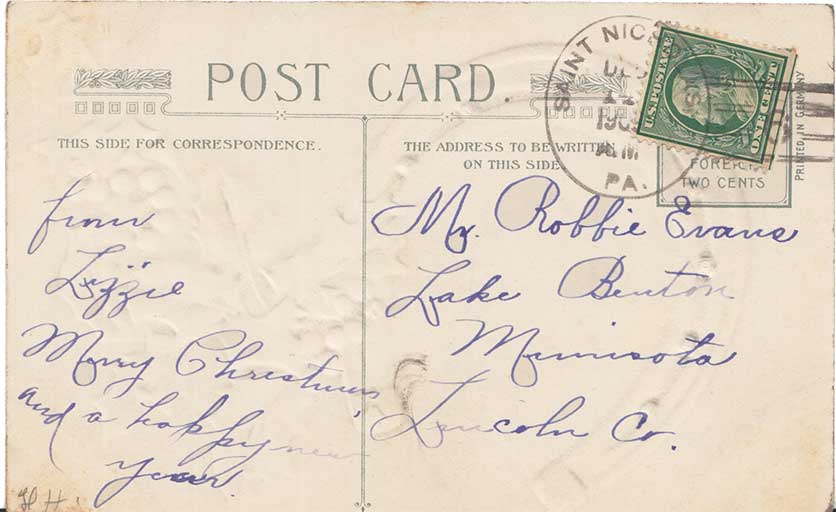 POST CARD
THIS SIDE FOR CORRESPONDENCE.
THE ADDRESS TO BE WRITTEN
ON THIS SIDE
SAINT
PA.
U.S. POSTAGE
ONE CENT
FOREIGN
TWO CENTS
PRINTED IN GERMANY
from
Lizzie
Merry Christmas
and a happy new
year.
H H.
Mr. Robbie Evans
Lake Benton
Minnisota
Lincoln Co.